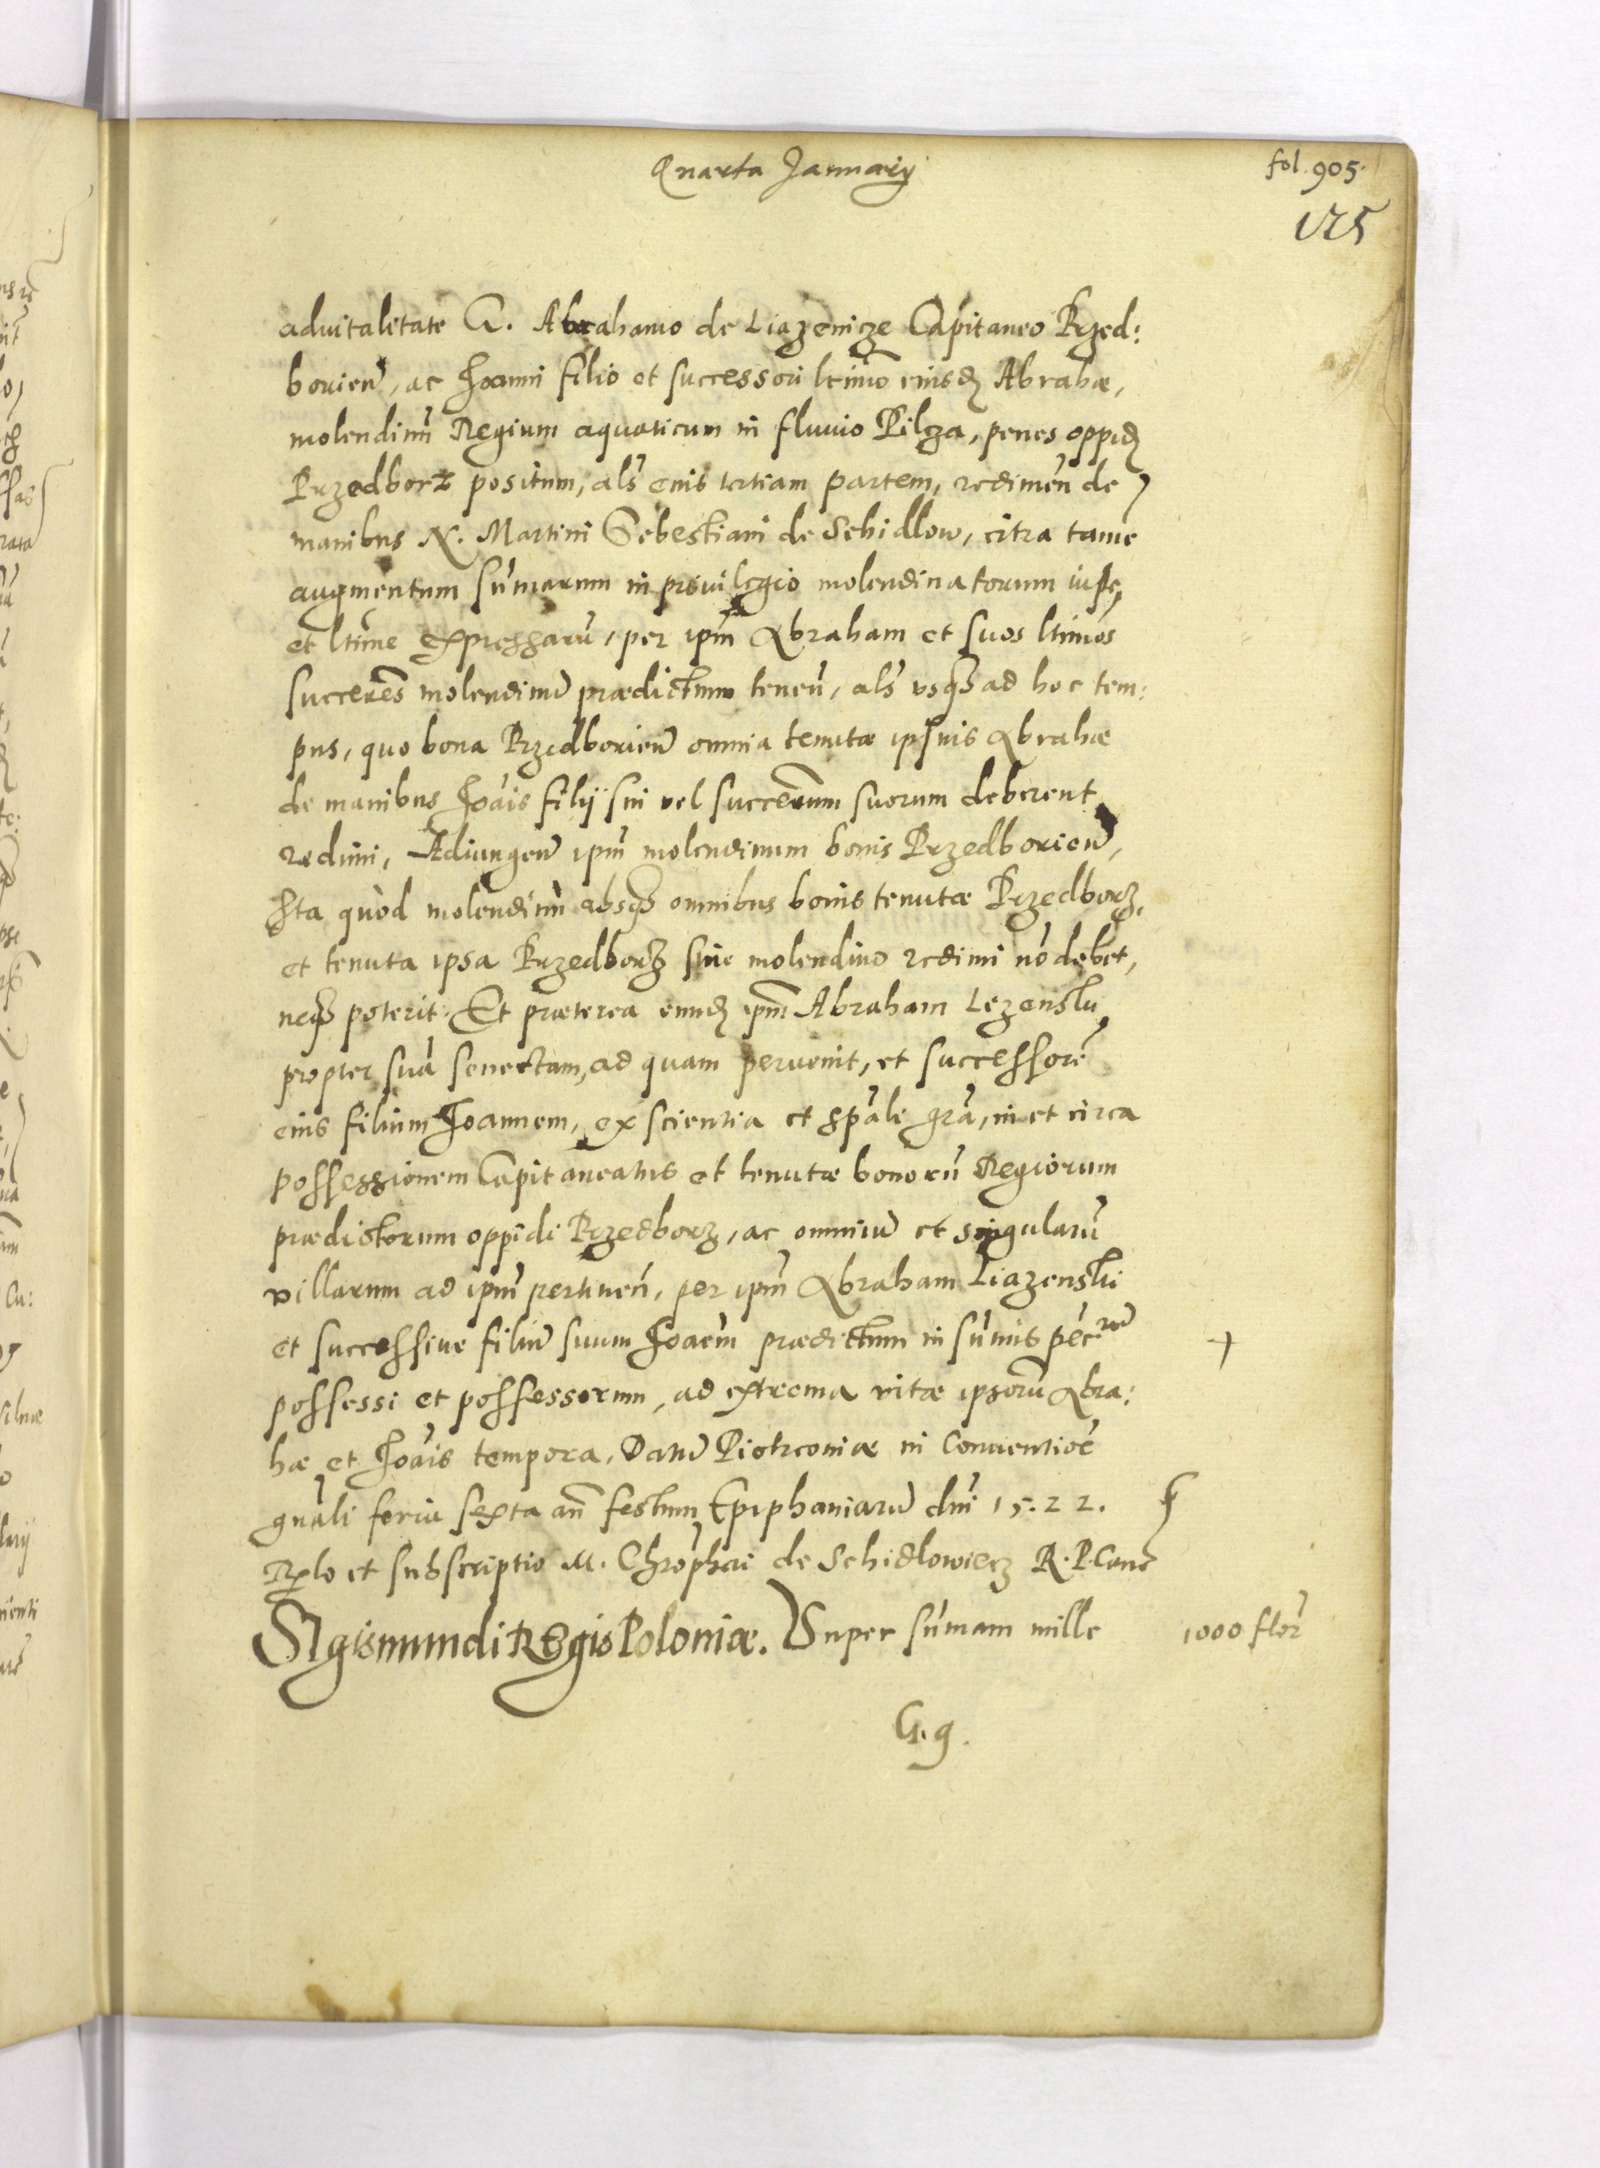 Quarta January
fol. 905.
175
aduitalitate G. Abrahamo de Liazenicze Capitaneo Przed:
borien̄, ac Joanni filio et successori ltimo eiusdꝫ Abrahæ,
molendinū Regium aquaticum in fluuio Pilcza, penes oppidꝫ
Przedborz positum, als̄ eius tertiam partem, redimen̄ de
manibus N. Martini Sebestiani de Schidlow, citra tame
augmentum sūmarum in priuilegio molendinatorum iuste,
et ltime expressarū, per ipm̄ Abraham et suos ltimos
succeres̄ molendinū prædictum tenen̄, als̄ vsqꝫ ad hoc tem:
pus, quo bona Przedborien̄ omnia tenutæ ipsius Abrahæ
de manibus Joāis filÿ sui vel succerum suorum deberent
redimi, Adiungen̄ ipm̄ molendinum bonis Przedborien̄,
Ita quòd molendinū absqꝫ omnibus bonis tenutæ Przedborz,
et tenuta ipsa Przedborz sine molendino redimi nō debet,
neqꝫ poterit. Et præterea eundꝫ ipm̄ Abraham Lezensky
propter suā senectam, ad quam peruenit, et successorē
eius filium Joannem, ex scientia et spāli grā, in et circa
possessionem Capitaneatus et tenutæ bonorū Regiorum
prædictorum oppidi Przedborz, ac omniū et singularū
villarum ad ipm̄ pertinen̄, per ipm̄ Abraham Liazenski
et successiue filiū suum Joaēm prædictum in sūmis pēcrū +
possessi et possessorum, ad extrema vitæ ipsorū Abra:
hæ et Joāis tempora, Datū Piotrconiæ in Conuentioē
gnāli feria sexta an̄ festum Epiphaniarū dnī 1522.
Rlo et subscriptio M. Chrophori de Schidlowiecz R. P. Canc
Sigismundi Regis Poloniæ. Super sūmam mille
1000 flor
G. g.